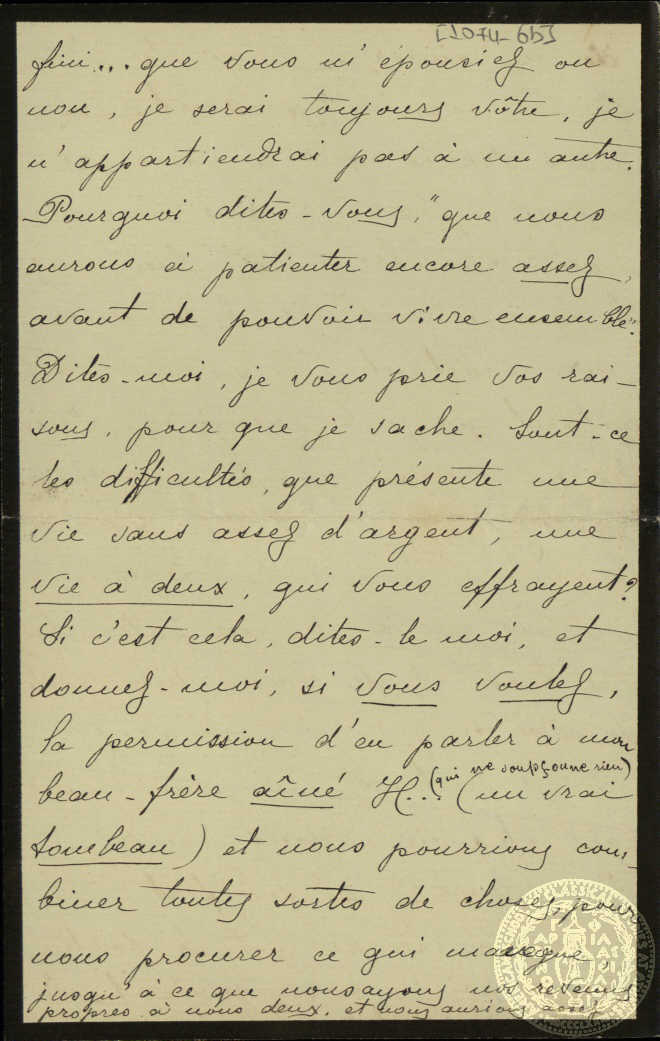 [1074-6b]
fini... que vous m'épousiez ou
non, je serai toujours vôtre, je
n'appartiendrai pas à un autre.
Pourquoi dites-vous, "que nous
aurons à patienter encore assez,
avant de pouvoir vivre ensemble".
Dites-moi, je vous prie vos rai-
sons, pour que je sache. Sont-ce
les difficultés, que présente une
vie sans assez d'argent, une
vie à deux, qui vous effrayent?
Si c'est cela, dites-le moi, et
donnez-moi, si vous voulez,
la permission d'en parler à mon
beau-frère aîné H... (qui ne soupçonne rien) (un vrai
tombeau) et nous pourrions com-
biner toutes sortes de choses, pour
nous procurer ce qui manque,
jusqu'à ce que nous ayons nos revenus
propres à nous deux, et nous aurions assez